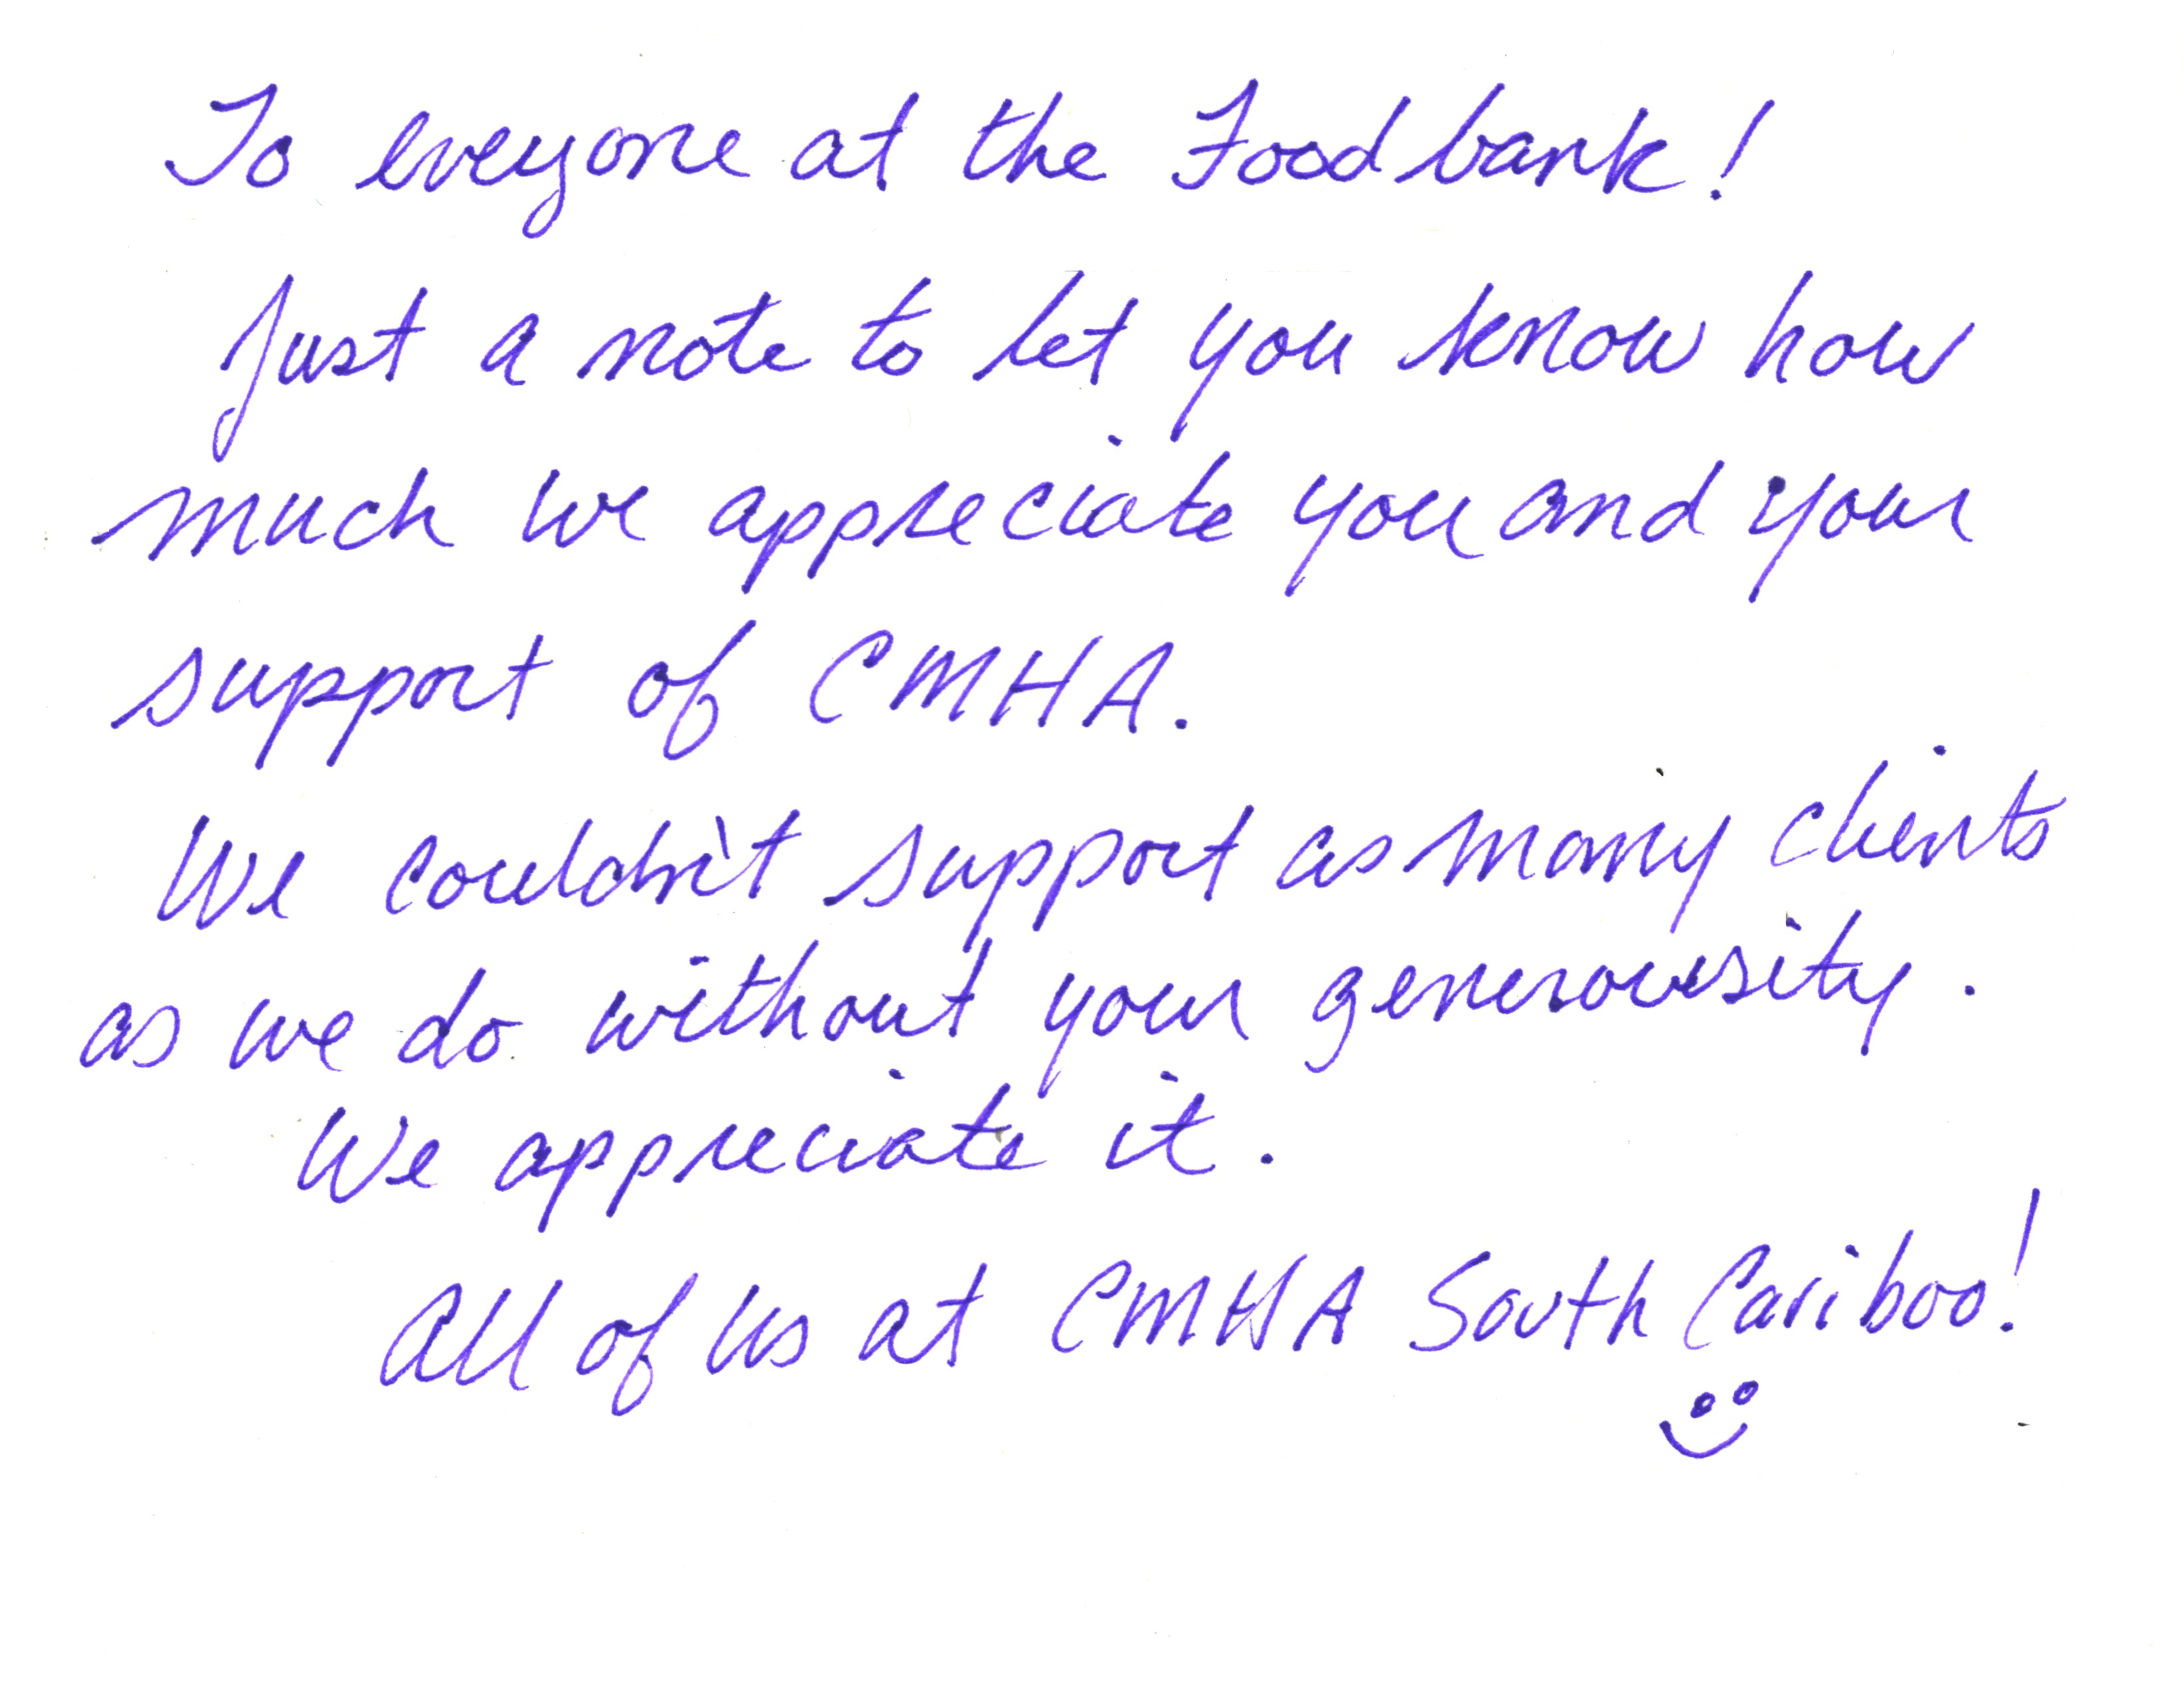 To everyone at the Food bank!
Just a note to let you know how
much we appreciate you and your
support of CMHA.
We couldn't support as many clients
as we do without your generousity.
We appreciate it.
All of us at CMHA South Cariboo!